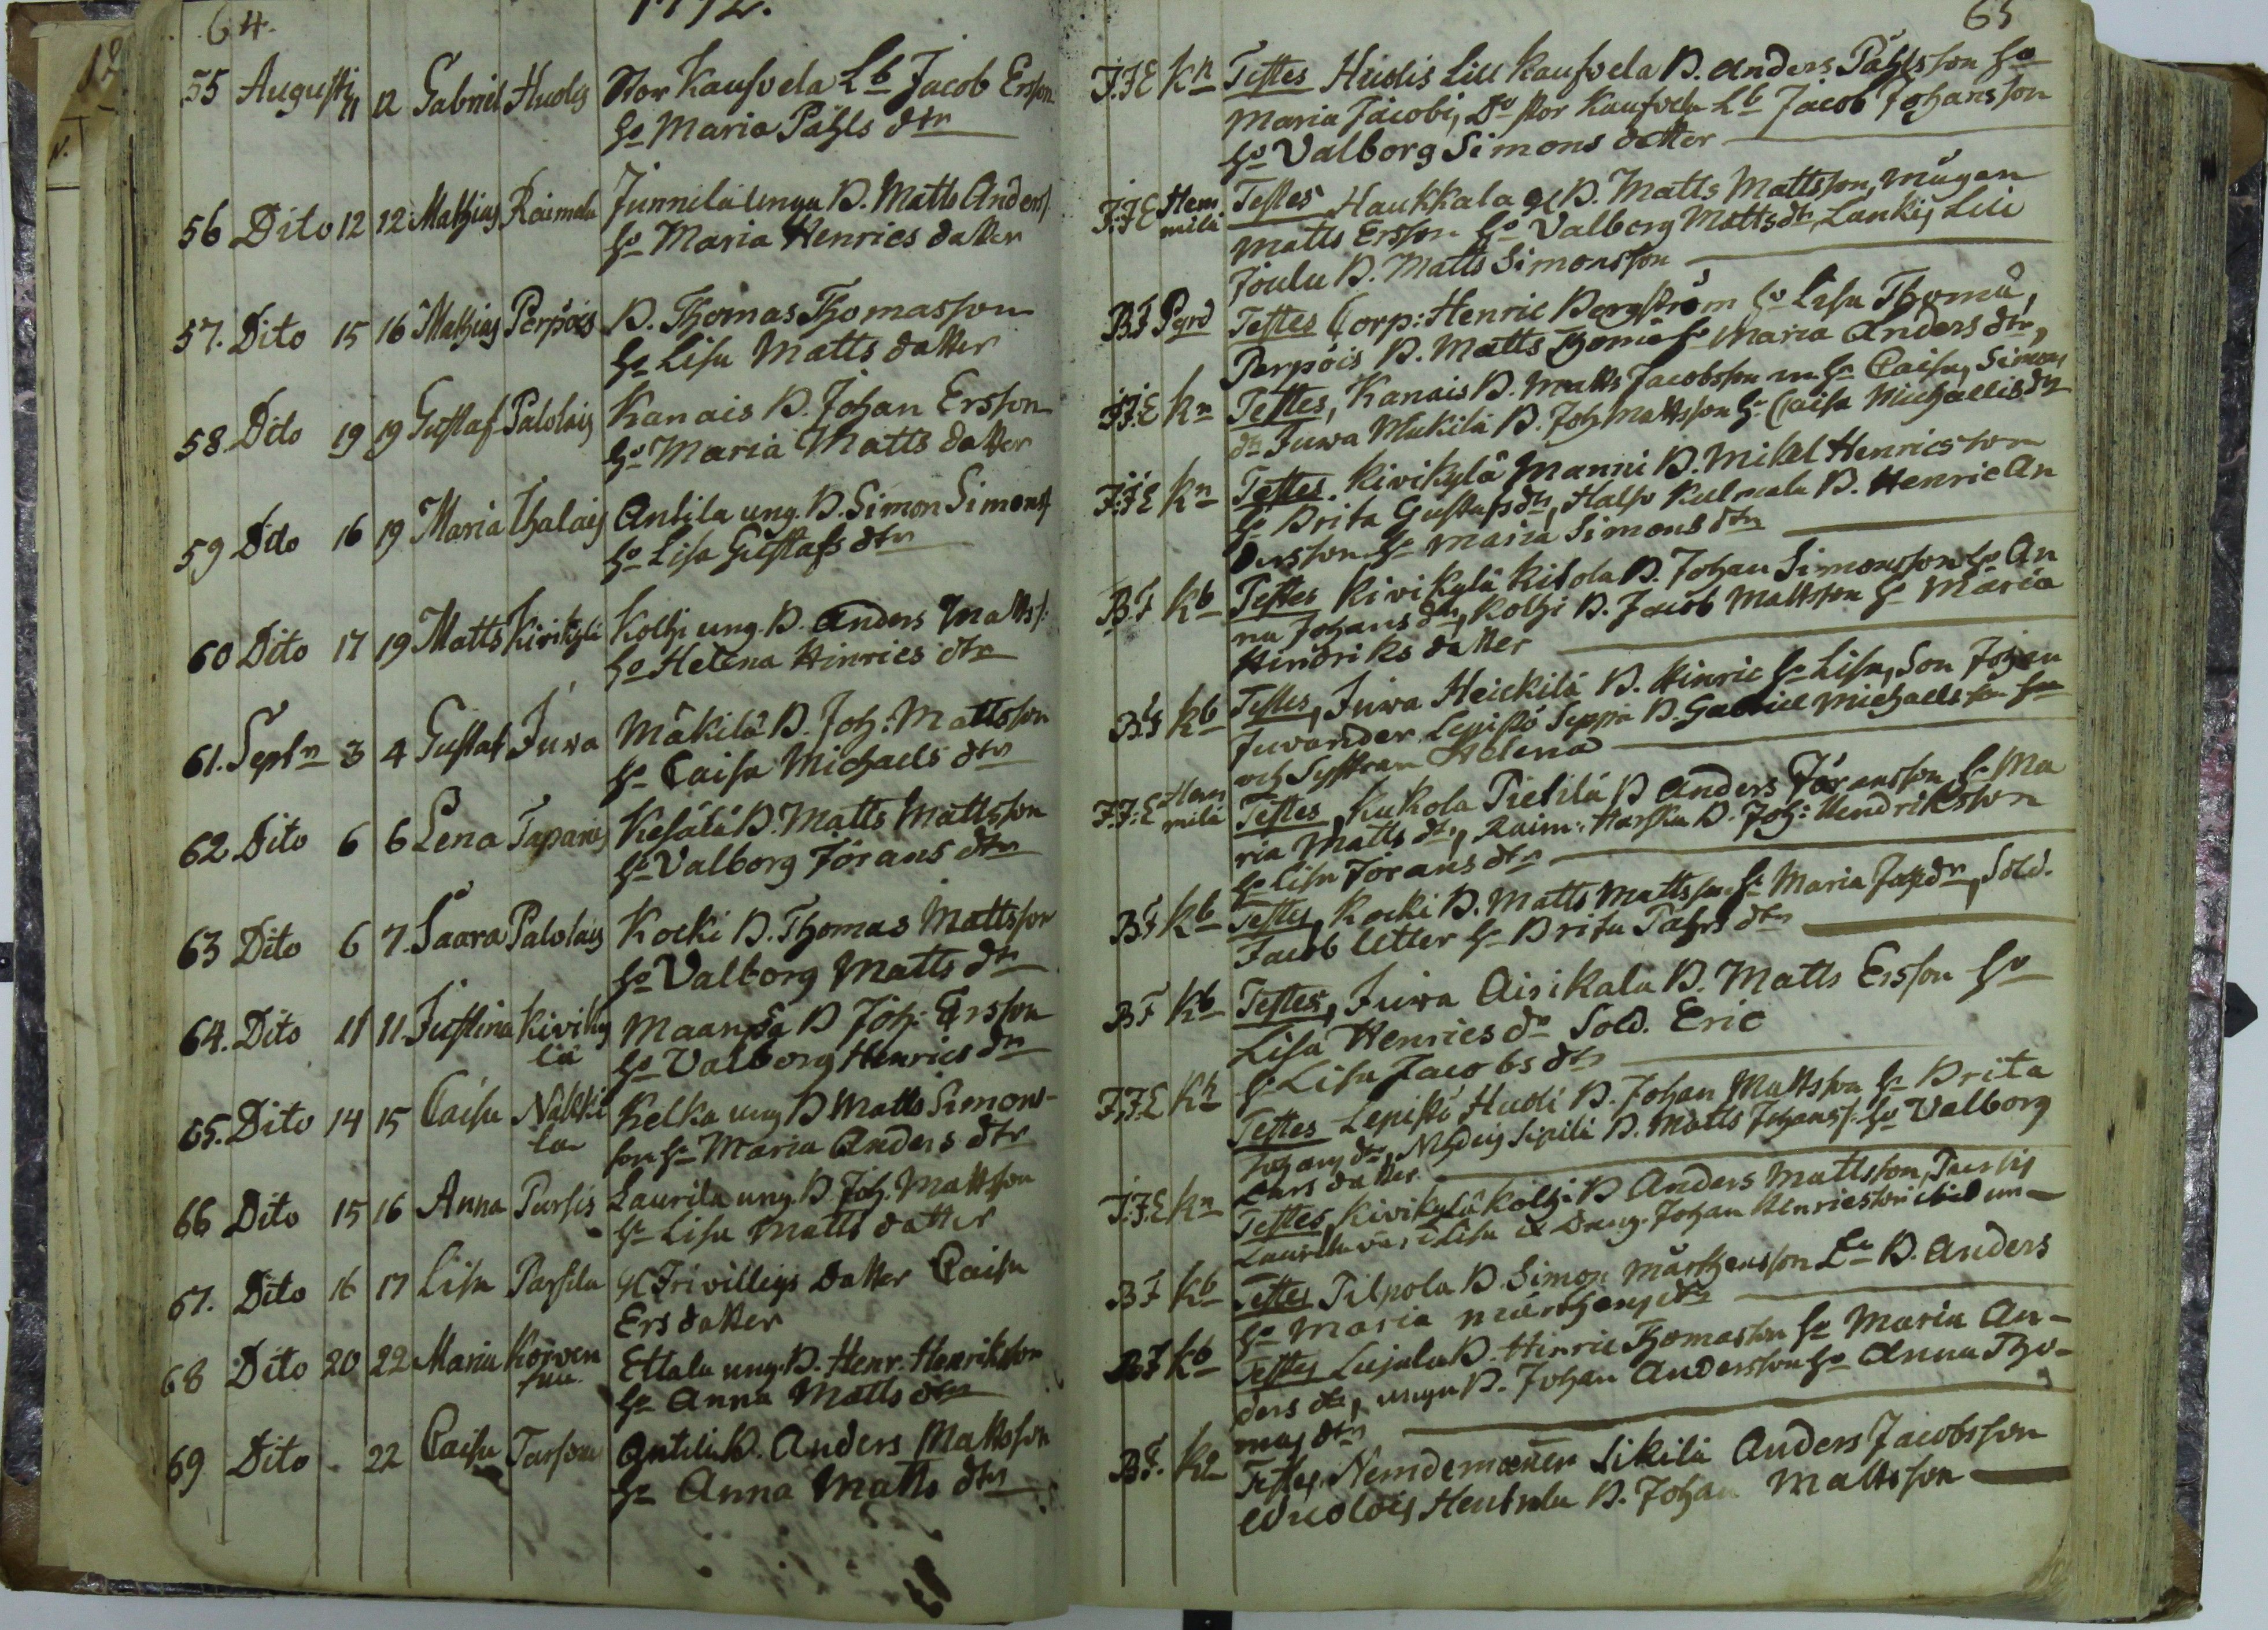 64.
55 Augusti 11 12 Gabriel Hudis Stor Kaufvela Lb Jacob Ersson
ho Maria Påhls dtr
56 Dito 12 12 Mathias Raimela Junnila unga B. Matts Anderss
ho Maria Henrics datter
57. Dito 15 16 Mathias Perpois B. Thomas Thomasson
ho Lisa Matts datter
58. Dito 19 19 Gustaf Palolais Kanais B. Johan Ersson
ho Maria Matts datter
59 Dito 16 19 Maria Antila ung. B. Simon Simonss
ho Lisa Gustafs dtr
60 Dito 17 19 Matts Kivikylä Kolhi ung. B. Anders Matts
ho Helena Hinrics dtr
61. Septr 3 4 Gustaf Juva Mäkilä B. Joh: Mattsson
ho Caisa Michaels dtr
62 Dito 6 6 Lena Tapanis Kesälä B. Matts Mattsson
ho Valborg Jörans dtr
63 Dito 6 7. Saara Palolais Kocki B. Thomas Mattsson
ho Valborg Matts dr
64. Dito 11 11. Justina Kiviky
lä Maanpä B Joh: Ersson
ho Valborg Henrics dr
65. Dito 14 15 Caisa Nalkki
la Kelka ung B Matts Simons-
son ho Maria Anders dtr
66 Dito 15 16 Anna Pursis Laurila ung. B. Joh. Mattsson
ho Lisa Matts datter
67. Dito 16 17 Lisa Parsila Frivilligs datter Caisa
Ers datter
68 Dito 20 22 Maria Korven
suu Ettala ung. B. Henr. Henriksson
ho Anna Matts dtr
69 Dito 22 Caisa Antila B. Anders Mattsson
ho Anna Matts dtr
65
J.F.E Kn Testes Hudis Lill Kaufvela B. Anders Påhlsson ho
Maria Jacobi, Do stor Kaufvela Lb Jacob Johansson
ho Valborg Simons datter
J.F.E Hem
mila Testes Haukkala B. Matts Mattsson, mågen
Matts Ersson ho Valborg Matts dr, Lankis Lill
Joula B. Matts Simonsson
B.F Pgrd Testes Corp: Henric Bergström ho Lisa Thomæ,
Perpois B. Matts Thomæ ho Maria Anders dtr,
J.F.E Kn Testes, Kanais B. Matts Jacobsson m. ho Caisa, Simons
dr Juva Mäkilä B. Joh Mattsson ho Caisa Michaelis dr
J.F.E Kn Testes. Kivikylä Manni B. Mikel Henricsson
ho Brita Gustafs dr, B. Henric An
dersson ho Maria Simons dtr
B.F Kb Testes Kivikylä Kitola B. Johan Simonsson ho An
na Johans dr, Kolhi B. Jacob Mattsson ho Maria
Hindriks datter
B.F Kb Testes, Juva Heickilä B. Hinric ho Lisa, Son Johan
Juvander, Lepistö Seppä B. Gabriel Michaelsson
och Systran Helena
J.F.E Hem
mila Testes, Kukola Pietilä B Anders Jöransson ho Ma
ria Matts dr, Raim: Harska B. Joh: Hendriksson
ho Lisa Jörans dtr
B.F Kb Testes, Kocki B. Matts Mattsson ho Maria, Sold.
Jacob Utter ho Brita Påhls dtr
B.F Kb Testes, Juva Airikala B. Matts Ersson ho
Lisa Henrics dr Sold. Eric
ho Lisa Jacobs dtr
J.F.E Kn Testes Lepistö Hudi B. Johan Mattsson ho Brita
Johans dtr, Sipilä B. Matts Johanss. ho Valborg
Lars datter
J.F.E Kn Testes, Kivikylä Kolhi B Anders Mattsson, Pursis
Laurila Lisa Johan Henricsson
B.F Kb Testes Pilpola B. Simon Mårthensson B. Anders
ho Maria Mårthens dtr
B.F Kb Testes Lujala B. Hinric Thomasson ho Maria An-
ders dr, unga B. Johan Andersson ho Anna Tho-
mas dtr
B.F. Testes Nemdemannen Sikilä Anders Jacobsson
Hentula B. Johan Mattsson